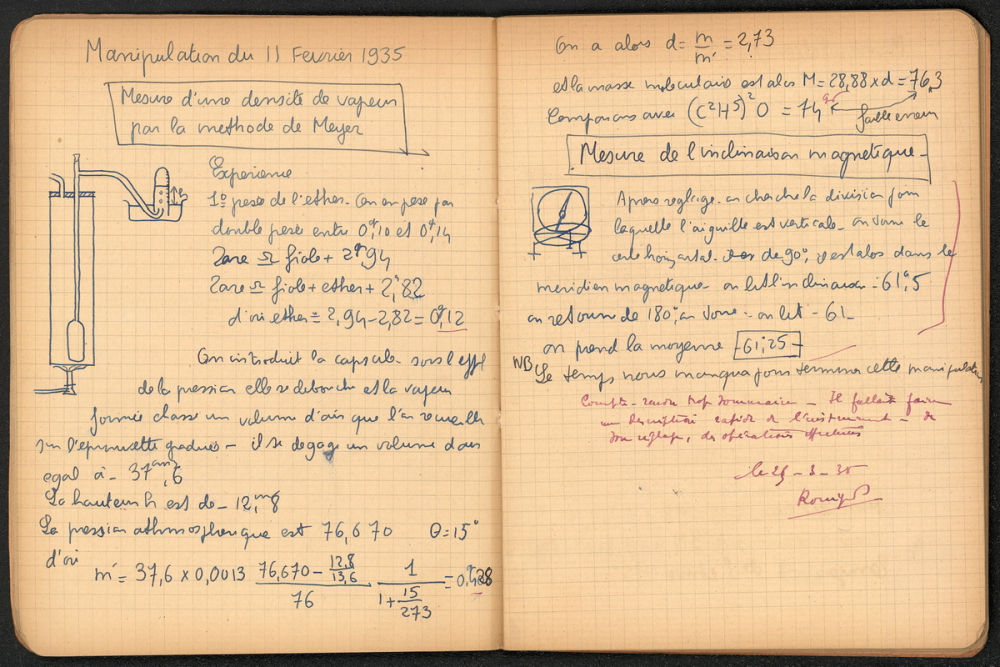 Manipulation du 11 Fevrier 1935
Mesure d'une densité de vapeur
par la methode de Meyer
h
Experience
1º pesee de l'ether. On en pese par
double pesee entre 0g,10 et 0g,14
Tare ≏ fiole + 2g,94
Tare ≏ fiole + ether + 2,82
d'où ether = 2,94 - 2,82 = 0g,12
On introduit la capsule. sous l'effet
de la pression elle se debouche et la vapeur
formée chasse un volume d'air que l'on recueille
sur l'eprouvette graduee - il se degage un volume d'air
egal à - 37cm3,6
La hauteur h est de - 12,8
La pression athmospherique est 76,670 θ=15°
d'où m' = 37,6 x 0,0013 (76,670 - 12,8/13,6)/76 . 1/(1 + 15/273) =
On a alors d = m/m' = 2,73
et la masse moleculaire est alors M = 28,88 x d = 76,3
Comparons avec (C²H⁵)²O = 74gr faible erreur
Mesure de l'inclinaison magnetique -
Apres reglage. on cherche la division pour
laquelle l'aiguille est verticale. on tourne le
cercle horizontal de 90°, est alors dans le
meridien magnetique - on lit l'inclinaison - 61°,5
on retourne de 180°, on lit - 61 -
on prend la moyenne - 61,25 -
NB Le temps nous manqua pour terminer cette manipulation
Compte-rendu trop sommaire - Il fallait faire
une description rapide de l'instrument - de
son reglage, des opérations effectuées
le 25 - 3 - 35